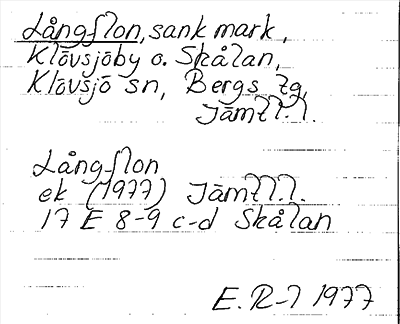 Långflon, sank mark,
Klövsjöby o. Skålan,
Klövsjö sn, Bergs tg,
Jämtl.l.
Långflon
ek (1977) Jämtl.l.
17 E 8-9 c-d Skålan
E. R-7 1977